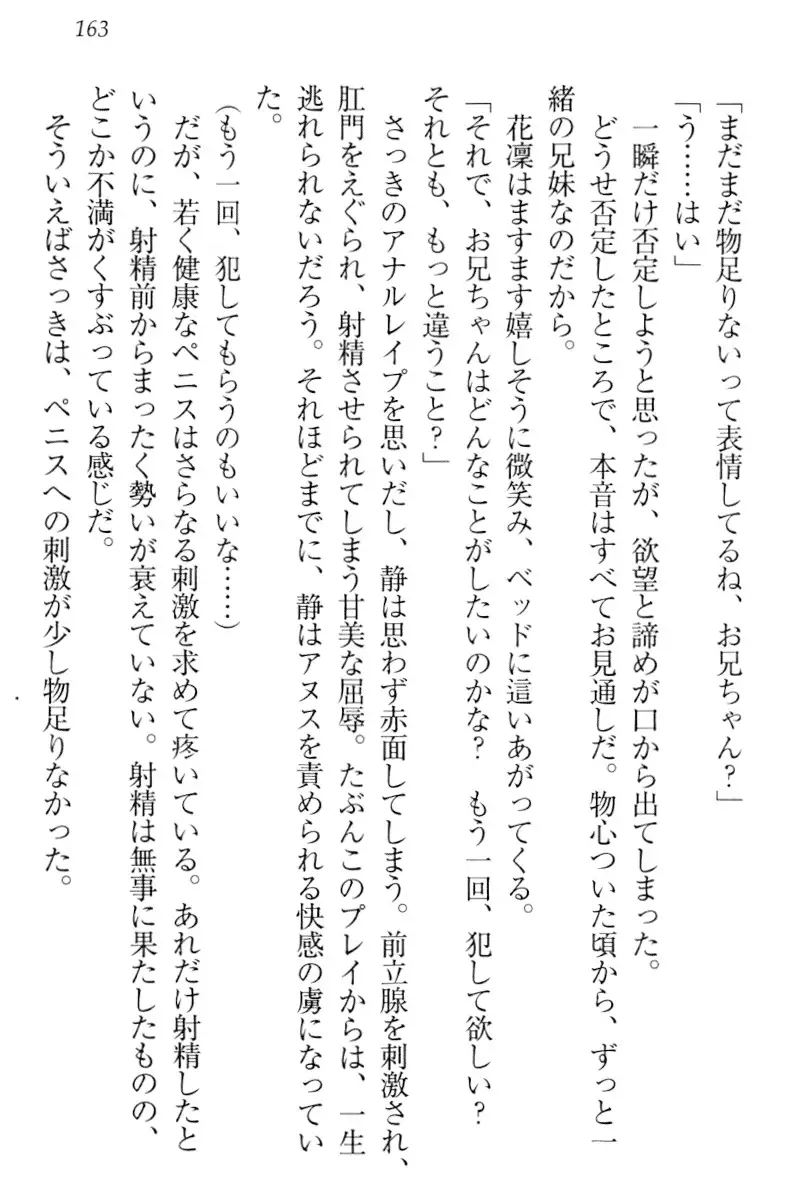 163
「まだまだ物足りないって表情してるね、お兄ちゃん？」
「う……はい」
一瞬だけ否定しようと思ったが、欲望と諦めが口から出てしまった。
どうせ否定したところで、本音はすべてお見通しだ。物心ついた頃から、ずっと一
緒の兄妹なのだから。
花凜はますます嬉しそうに微笑み、ベッドに這いあがってくる。
「それで、お兄ちゃんはどんなことがしたいのかな？　もう一回、犯して欲しい？
それとも、もっと違うこと？」
さっきのアナルレイプを思いだし、静は思わず赤面してしまう。前立腺を刺激され、
肛門をえぐられ、射精させられてしまう甘美な屈辱。たぶんこのプレイからは、一生
逃れられないだろう。それほどまでに、静はアヌスを責められる快感の虜になってい
た。
（もう一回、犯してもらうのもいいな……）
だが、若く健康なペニスはさらなる刺激を求めて疼いている。あれだけ射精したと
いうのに、射精前からまったく勢いが衰えていない。射精は無事に果たしたものの、
どこか不満がくすぶっている感じだ。
そういえばさっきは、ペニスへの刺激が少し物足りなかった。